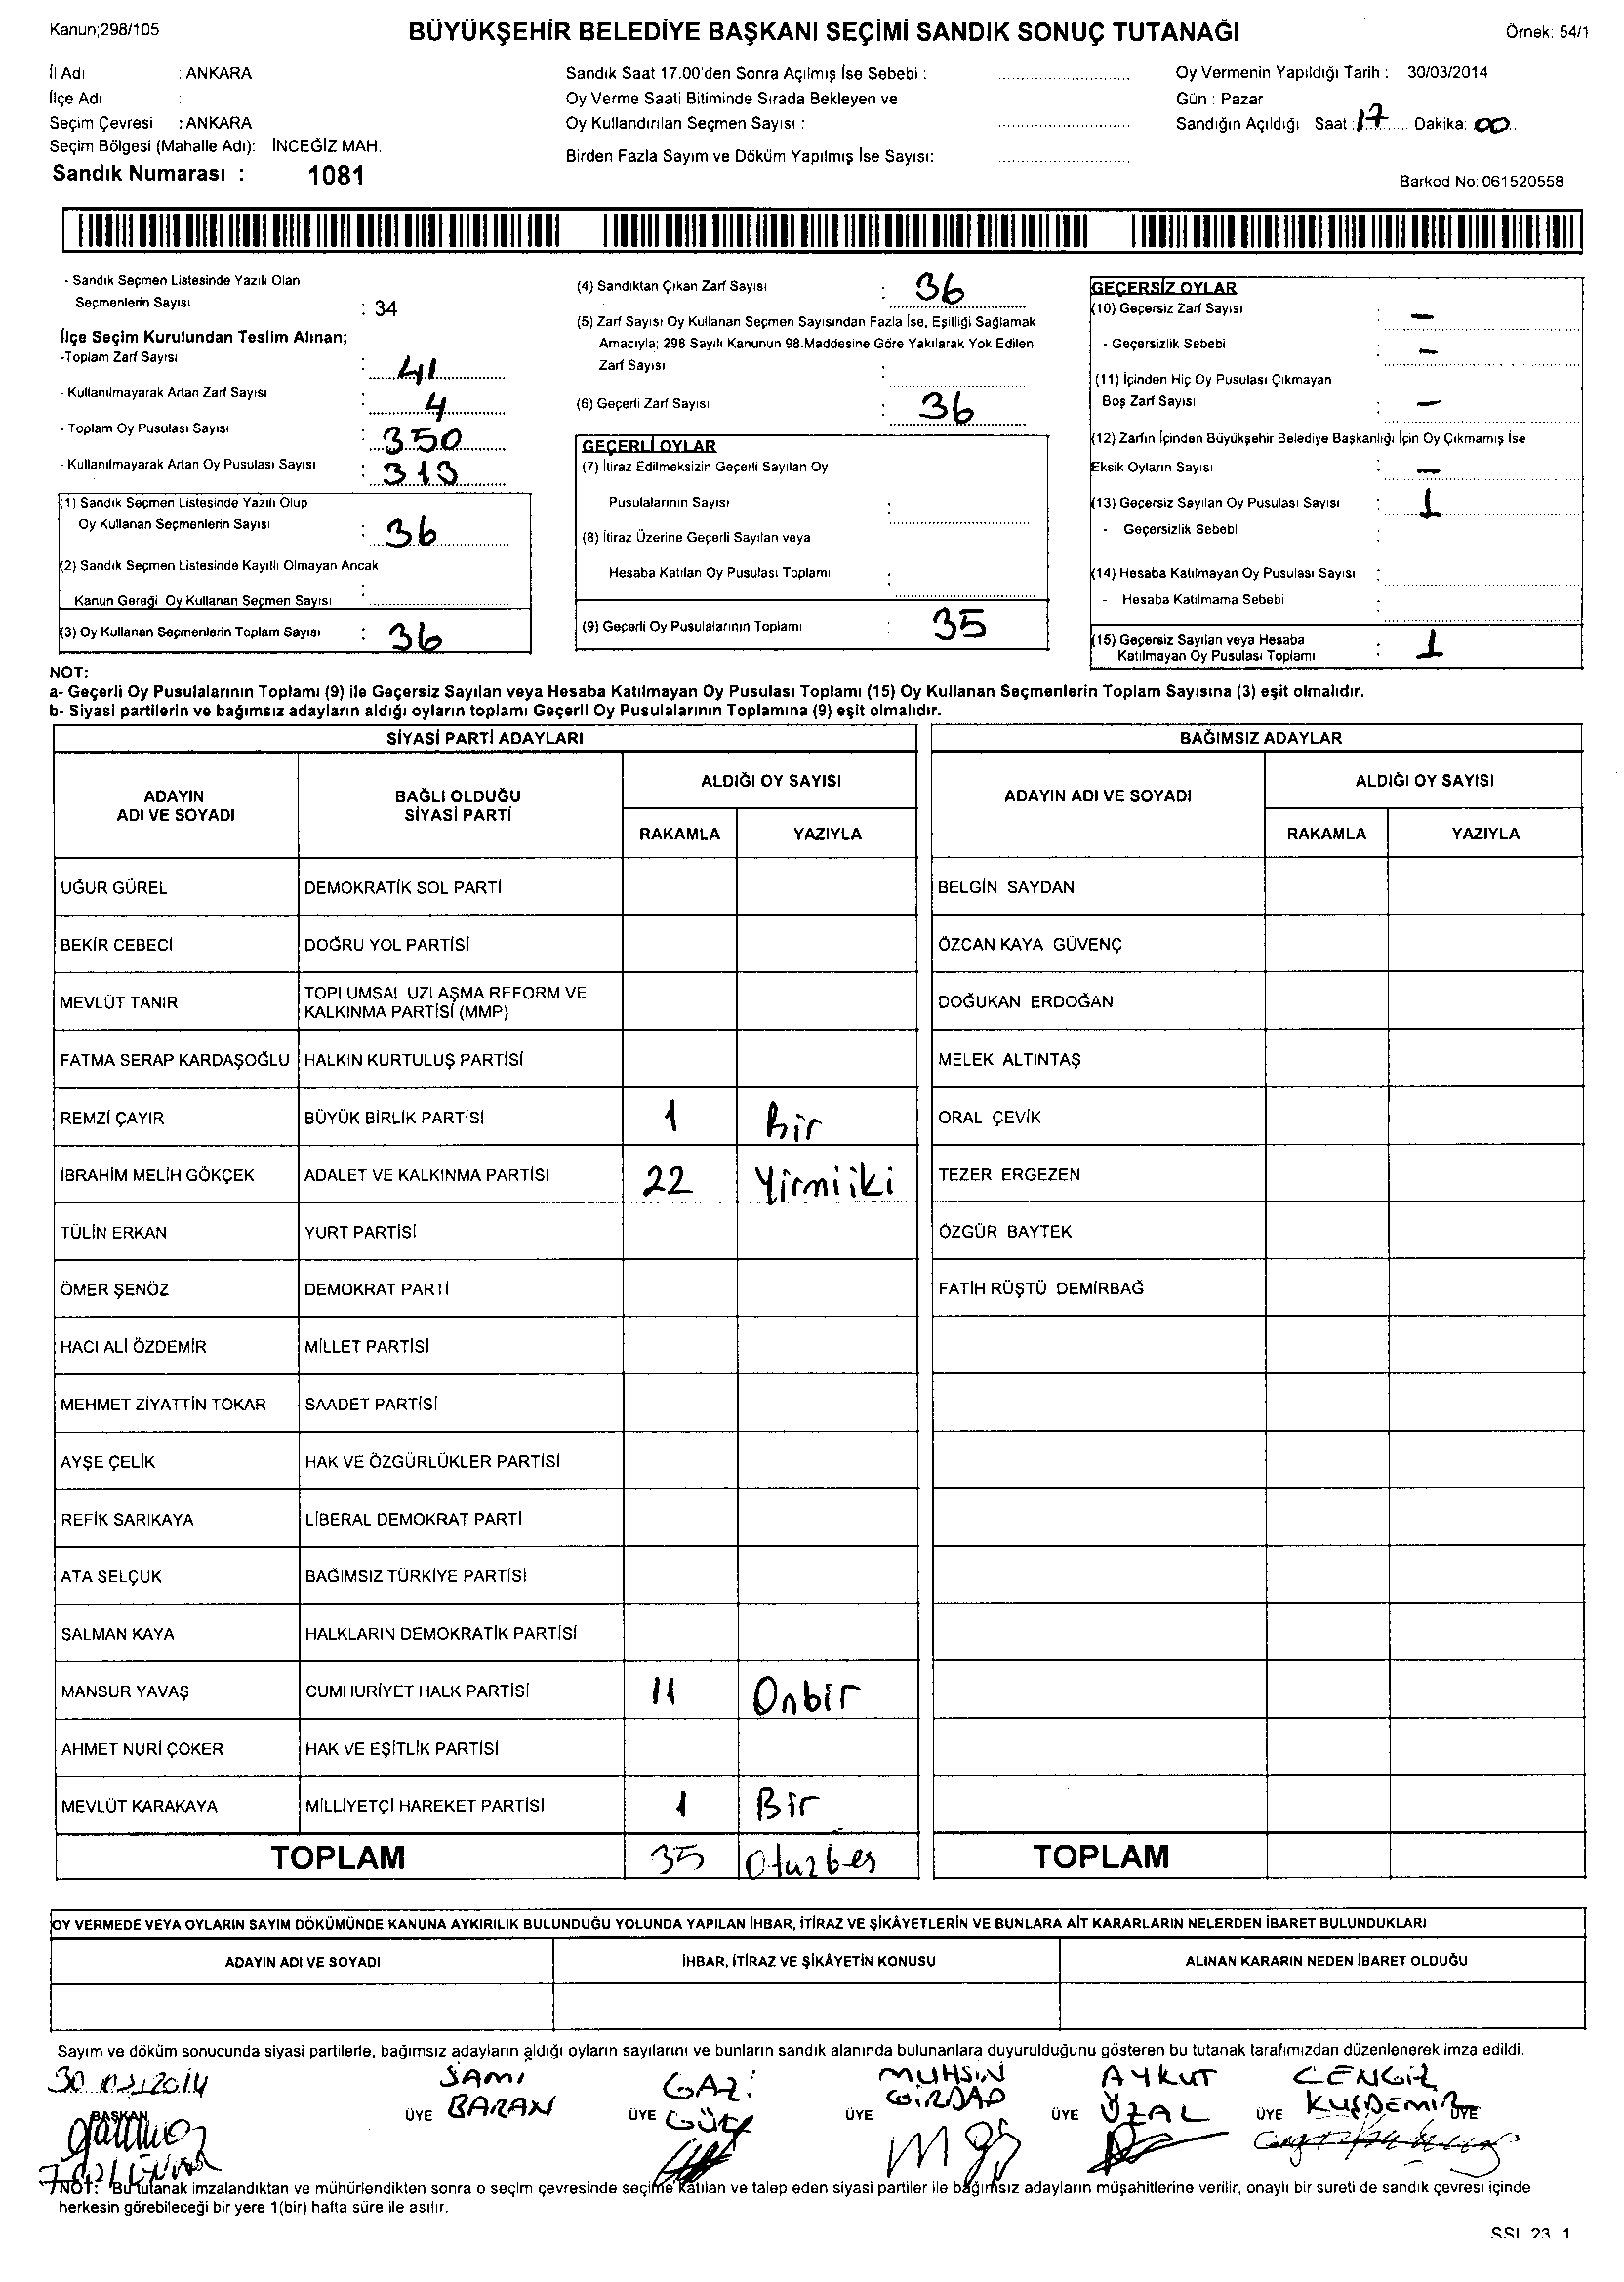 Kanun;298/105
BÜYÜKŞEHİR BELEDİYE BAŞKANI SEÇİMİ SANDIK SONUÇ TUTANAĞI
Örnek: 54/1
İl Adı : ANKARA
İlçe Adı :
Seçim Çevresi : ANKARA
Seçim Bölgesi (Mahalle Adı): İNCEĞİZ MAH.
Sandık Numarası : 1081
Sandık Saat 17.00'den Sonra Açılmış İse Sebebi :
Oy Verme Saati Bitiminde Sırada Bekleyen ve
Oy Kullandırılan Seçmen Sayısı :
Birden Fazla Sayım ve Döküm Yapılmış İse Sayısı:
Oy Vermenin Yapıldığı Tarih : 30/03/2014
Gün : Pazar
Sandığın Açıldığı Saat : 17 Dakika: 00
Barkod No: 061520558
- Sandık Seçmen Listesinde Yazılı Olan
Seçmenlerin Sayısı : 34
İlçe Seçim Kurulundan Teslim Alınan;
-Toplam Zarf Sayısı : 41
- Kullanılmayarak Artan Zarf Sayısı : 4
- Toplam Oy Pusulası Sayısı : 350
- Kullanılmayarak Artan Oy Pusulası Sayısı : 313
(1) Sandık Seçmen Listesinde Yazılı Olup
Oy Kullanan Seçmenlerin Sayısı : 36
(2) Sandık Seçmen Listesinde Kayıtlı Olmayan Ancak
Kanun Gereği Oy Kullanan Seçmen Sayısı :
(3) Oy Kullanan Seçmenlerin Toplam Sayısı : 36
(4) Sandıktan Çıkan Zarf Sayısı : 36
(5) Zarf Sayısı Oy Kullanan Seçmen Sayısından Fazla İse, Eşitliği Sağlamak
Amacıyla; 298 Sayılı Kanunun 98.Maddesine Göre Yakılarak Yok Edilen
Zarf Sayısı :
(6) Geçerli Zarf Sayısı : 36
GEÇERLİ OYLAR
(7) İtiraz Edilmeksizin Geçerli Sayılan Oy
Pusulalarının Sayısı :
(8) İtiraz Üzerine Geçerli Sayılan veya
Hesaba Katılan Oy Pusulası Toplamı :
(9) Geçerli Oy Pusulalarının Toplamı : 35
GEÇERSİZ OYLAR
(10) Geçersiz Zarf Sayısı : —
- Geçersizlik Sebebi : —
(11) İçinden Hiç Oy Pusulası Çıkmayan
Boş Zarf Sayısı : —
(12) Zarfın İçinden Büyükşehir Belediye Başkanlığı İçin Oy Çıkmamış İse
Eksik Oyların Sayısı : —
(13) Geçersiz Sayılan Oy Pusulası Sayısı : 1
- Geçersizlik Sebebi
(14) Hesaba Katılmayan Oy Pusulası Sayısı :
- Hesaba Katılmama Sebebi :
(15) Geçersiz Sayılan veya Hesaba
Katılmayan Oy Pusulası Toplamı : 1
NOT:
a- Geçerli Oy Pusulalarının Toplamı (9) ile Geçersiz Sayılan veya Hesaba Katılmayan Oy Pusulası Toplamı (15) Oy Kullanan Seçmenlerin Toplam Sayısına (3) eşit olmalıdır.
b- Siyasi partilerin ve bağımsız adayların aldığı oyların toplamı Geçerli Oy Pusulalarının Toplamına (9) eşit olmalıdır.
SİYASİ PARTİ ADAYLARI
ADAYIN ADI VE SOYADI
BAĞLI OLDUĞU SİYASİ PARTİ
ALDIĞI OY SAYISI
RAKAMLA YAZIYLA
UĞUR GÜREL DEMOKRATİK SOL PARTİ
BEKİR CEBECİ DOĞRU YOL PARTİSİ
MEVLÜT TANIR TOPLUMSAL UZLAŞMA REFORM VE
KALKINMA PARTİSİ (MMP)
FATMA SERAP KARDAŞOĞLU HALKIN KURTULUŞ PARTİSİ
REMZİ ÇAYIR BÜYÜK BİRLİK PARTİSİ 1 bir
İBRAHİM MELİH GÖKÇEK ADALET VE KALKINMA PARTİSİ 22 Yirmiiki
TÜLİN ERKAN YURT PARTİSİ
ÖMER ŞENÖZ DEMOKRAT PARTİ
HACI ALİ ÖZDEMİR MİLLET PARTİSİ
MEHMET ZİYATTİN TOKAR SAADET PARTİSİ
AYŞE ÇELİK HAK VE ÖZGÜRLÜKLER PARTİSİ
REFİK SARIKAYA LİBERAL DEMOKRAT PARTİ
ATA SELÇUK BAĞIMSIZ TÜRKİYE PARTİSİ
SALMAN KAYA HALKLARIN DEMOKRATİK PARTİSİ
MANSUR YAVAŞ CUMHURİYET HALK PARTİSİ 11 Onbir
AHMET NURİ ÇOKER HAK VE EŞİTLİK PARTİSİ
MEVLÜT KARAKAYA MİLLİYETÇİ HAREKET PARTİSİ 1 Bir
TOPLAM 35 Oturbeş
BAĞIMSIZ ADAYLAR
ADAYIN ADI VE SOYADI
ALDIĞI OY SAYISI
RAKAMLA YAZIYLA
BELGİN SAYDAN
ÖZCAN KAYA GÜVENÇ
DOĞUKAN ERDOĞAN
MELEK ALTINTAŞ
ORAL ÇEVİK
TEZER ERGEZEN
ÖZGÜR BAYTEK
FATİH RÜŞTÜ DEMİRBAĞ
TOPLAM
OY VERMEDE VEYA OYLARIN SAYIM DÖKÜMÜNDE KANUNA AYKIRILIK BULUNDUĞU YOLUNDA YAPILAN İHBAR, İTİRAZ VE ŞİKÂYETLERİN VE BUNLARA AİT KARARLARIN NELERDEN İBARET BULUNDUKLARI
ADAYIN ADI VE SOYADI
İHBAR, İTİRAZ VE ŞİKÂYETİN KONUSU
ALINAN KARARIN NEDEN İBARET OLDUĞU
Sayım ve döküm sonucunda siyasi partilerle, bağımsız adayların aldığı oyların sayılarını ve bunların sandık alanında bulunanlara duyurulduğunu gösteren bu tutanak tarafımızdan düzenlenerek imza edildi.
30.03.2014
BAŞKAN
ÜYE SAMİ BARAN
ÜYE GAZİ
ÜYE MUHSİN GİRDAP
ÜYE AYKUT ÜZAL
ÜYE CENGİZ KUŞDEMİR
ÜYE
NOT: Bu tutanak imzalandıktan ve mühürlendikten sonra o seçim çevresinde seçime katılan ve talep eden siyasi partiler ile bağımsız adayların müşahitlerine verilir, onaylı bir sureti de sandık çevresi içinde
herkesin görebileceği bir yere 1(bir) hafta süre ile asılır.
SSL 23 1